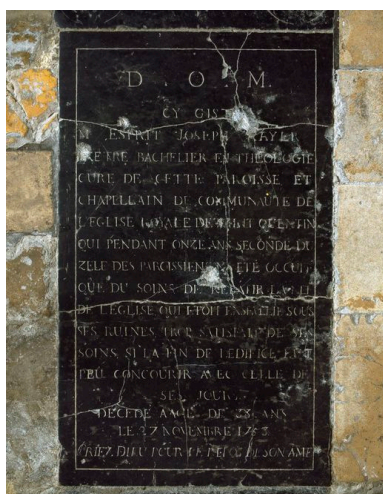 D. O. M.
CY GIST
M ESPRIT JOSEPH
PRETRE BACHELIER EN THEOLOGIE
CURE DE CETTE PAROISSE ET
CHAPELLAIN DE COMMUNAUTE DE
L'EGLISE ROYALE DE SAINT QUENTIN
QUI PENDANT ONZE ANS SECONDÉ DU
ZELE DES PAROISSIENS N'A ETE OCCUPÉ
QUE DU SOINS DE
DE L'EGLISE QUI ETOIT SOUS
SES RUINES TROP SATISFAIT DE SES
SOINS, SI LA FIN DE L'EDIFICE EUT
PEU CONCOURIR AVEC CELLE DE
SES JOUR
DECEDE AAGE DE ANS
LE 27 NOVEMBRE
PRIEZ DIEU POUR LE REPOS DE SON AME